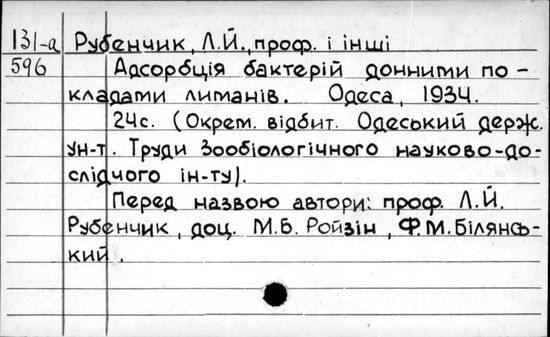 131-а Рубенчик, Л.Й., проф. і інші
596 Адсорбція бактерій донними по-
кладами лиманів. Одеса, 1934.
24с. (Окрем. відбит. Одеський держ.
ун-т. Труди Зообіологічного науково-до-
слідчого ін-ту).
Перед назвою автори: проф. Л.Й.
Рубенчик, доц. М.Б. Ройзін, Ф.М.Білянсь-
кий.